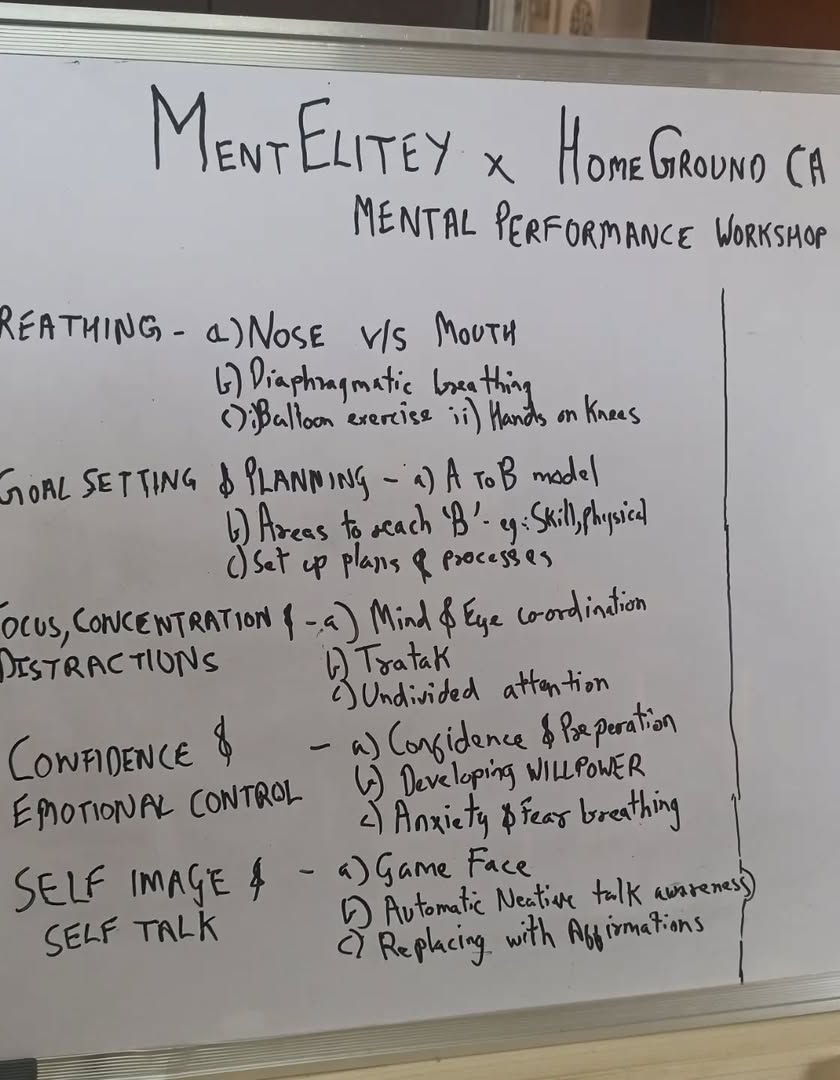 MENTELITEY x HOMEGROUND CA
MENTAL PERFORMANCE WORKSHOP
REATHING - a) NOSE V/S MOUTH
b) Diaphragmatic breathing
c) i) Balloon exercise ii) Hands on Knees
GOAL SETTING & PLANNING - a) A TO B model
b) Areas to reach 'B' - eg: Skill, physical
c) Set up plans & processes
OCUS, CONCENTRATION & - a) Mind & Eye co-ordination
DISTRACTIONS b) Tratak
c) Undivided attention
CONFIDENCE & - a) Confidence & Preperation
EMOTIONAL CONTROL b) Developing WILLPOWER
c) Anxiety & Fear breathing
SELF IMAGE & - a) Game Face
SELF TALK b) Automatic Neative talk awareness
c) Replacing with Affirmations